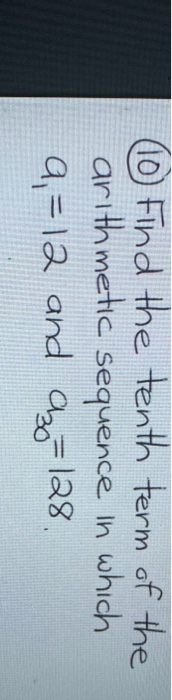 (10) Find the tenth term of the
arithmetic sequence in which
a₁=12 and a₃₀=128.